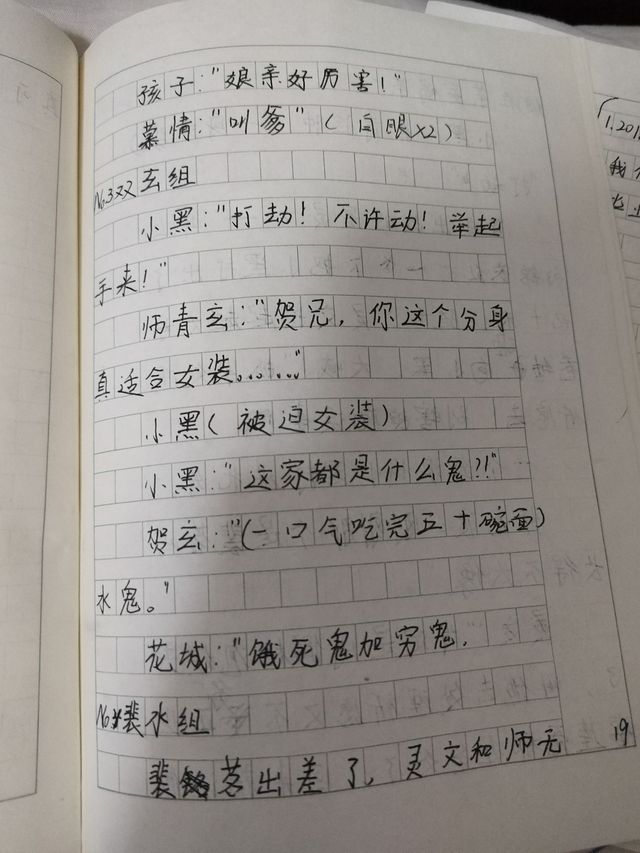 孩子："娘亲好厉害！"
慕情："叫爹"（白眼x2）
No.3双玄组
小黑："打劫！不许动！举起
手来！"
师青玄："贺兄，你这个分身
真适合女装……"
小黑（被迫女装）
小黑："这家都是什么鬼?!"
贺玄："（一口气吃完五十碗面）
水鬼。"
花城："饿死鬼加穷鬼.
裴水组
裴茗出差了，灵文和师无
19
1.201
我